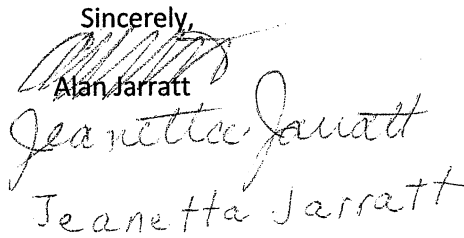 Sincerely,
Alan Jarratt
Jeanetta Jarratt
Jeanetta Jarratt